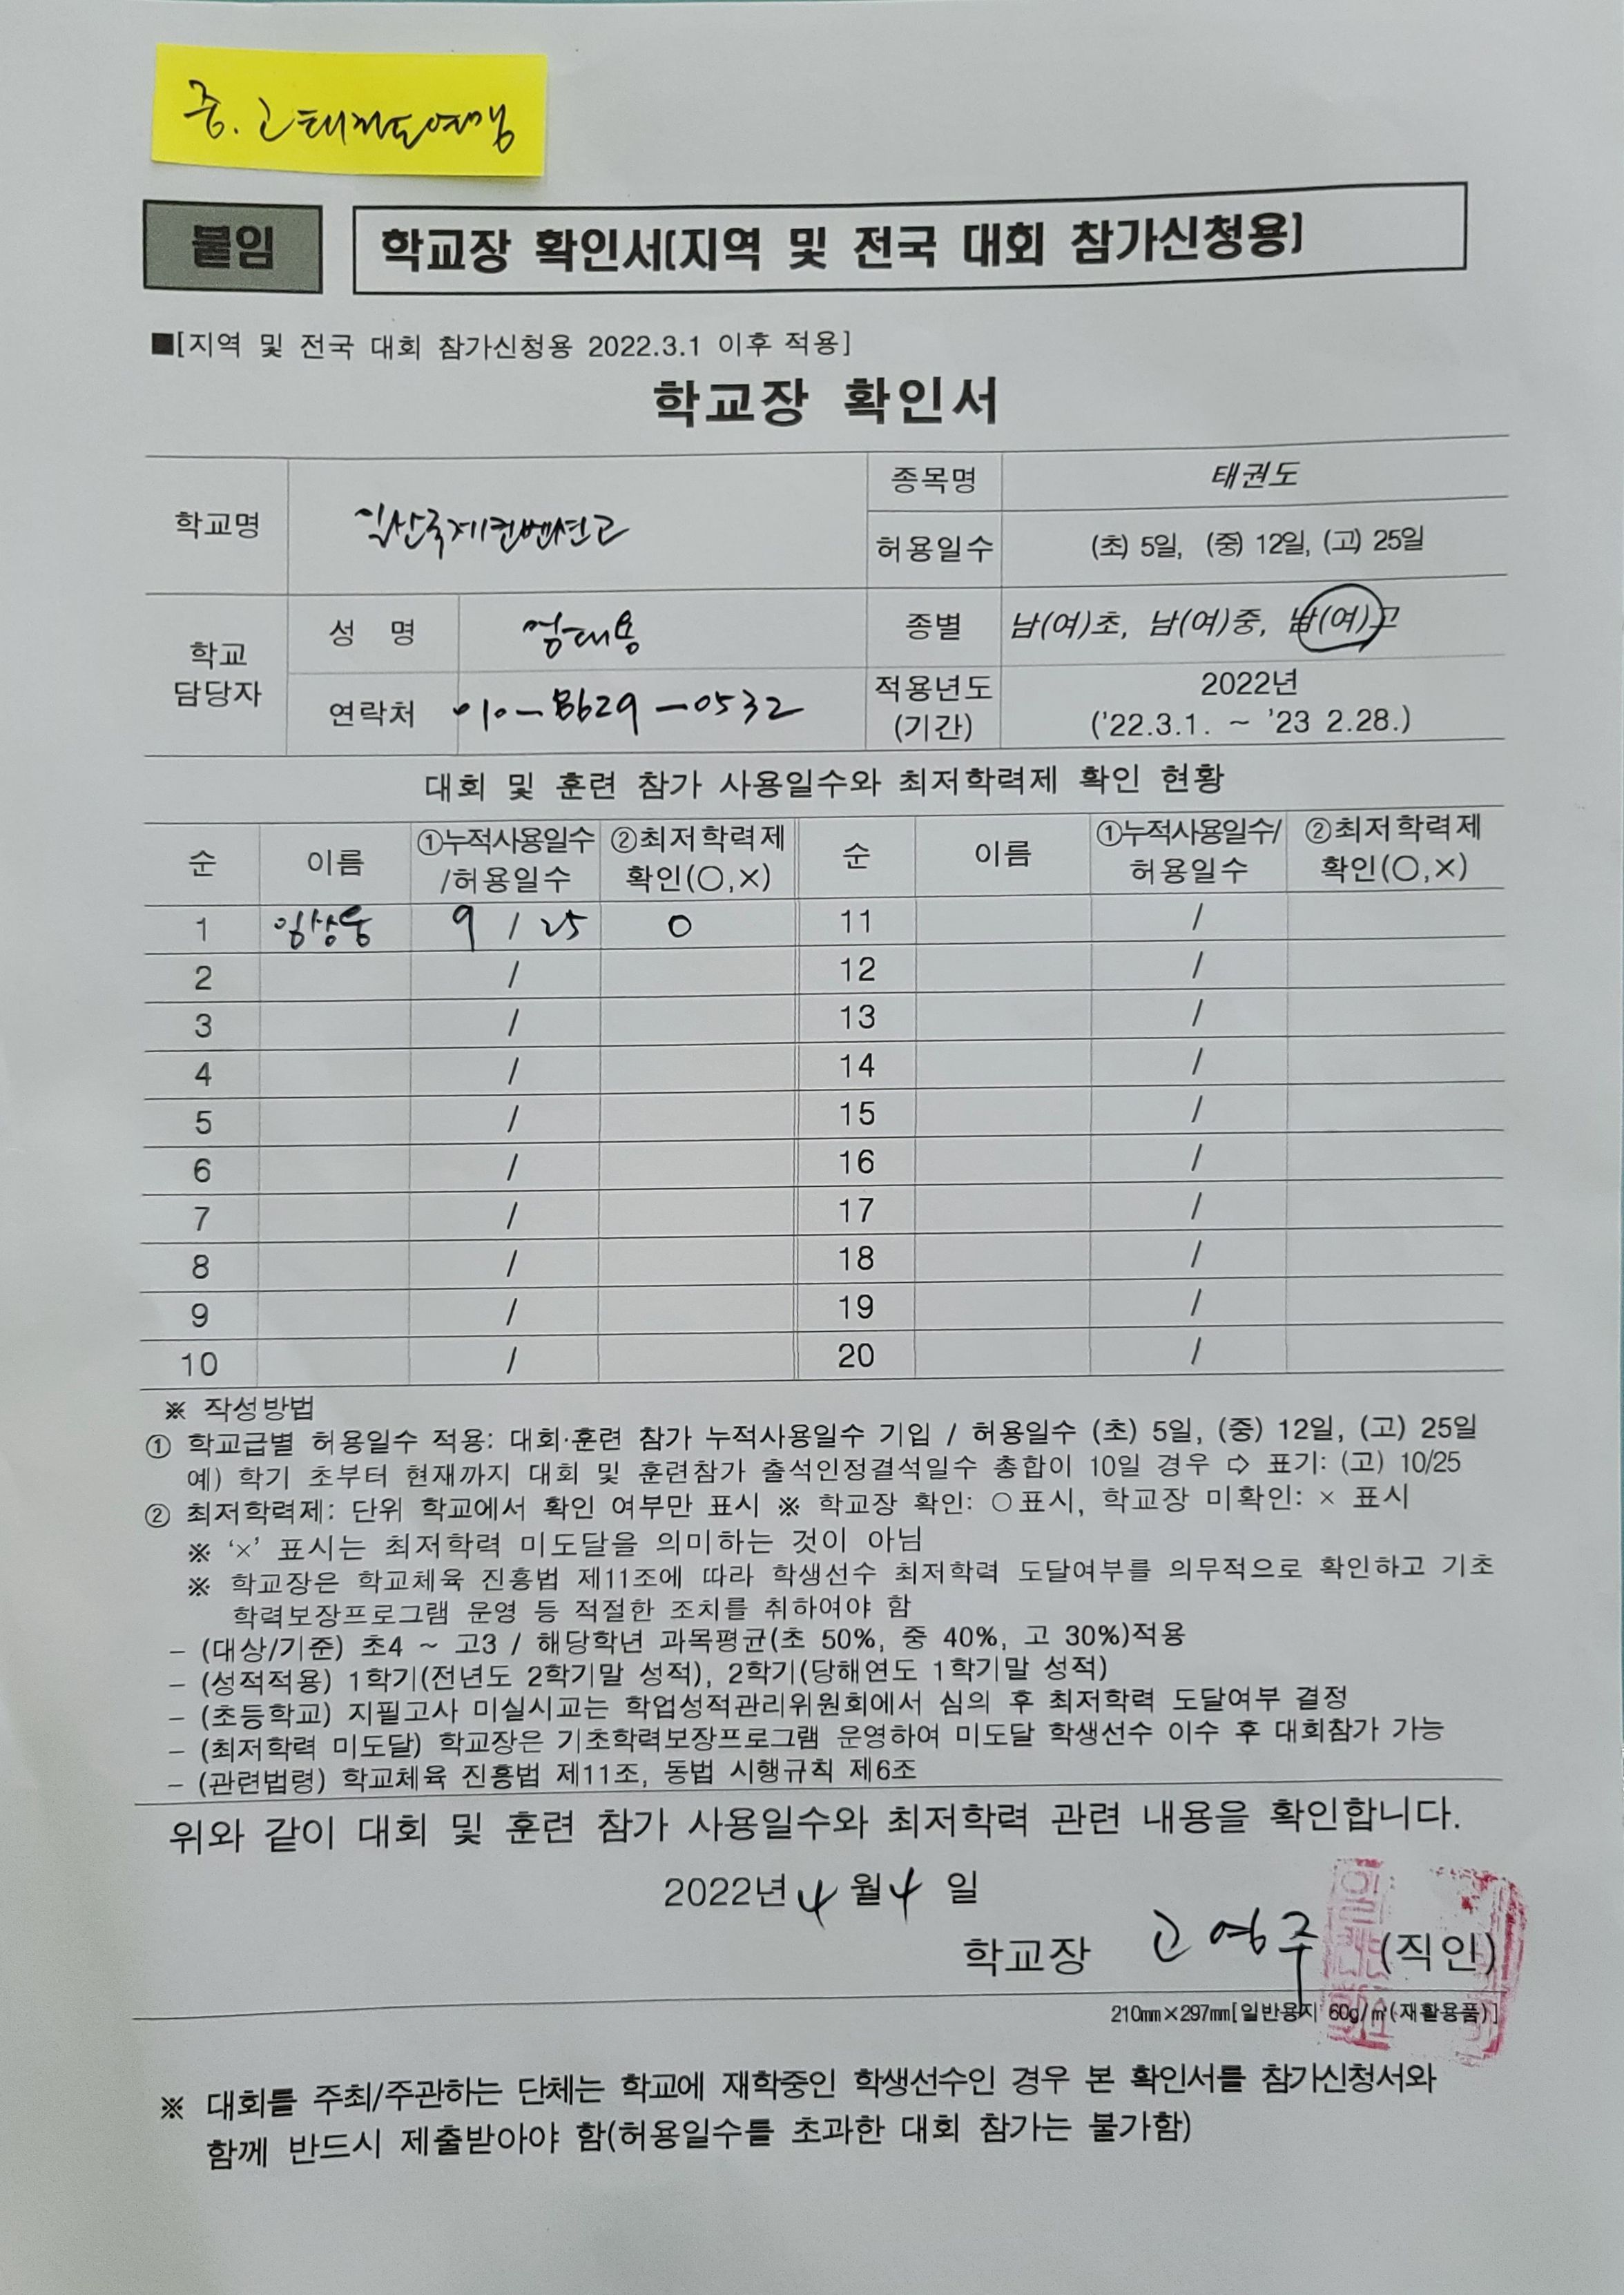 중.고태권도연맹
붙임
학교장 확인서(지역 및 전국 대회 참가신청용)
■[지역 및 전국 대회 참가신청용 2022.3.1 이후 적용]
학교장 확인서
학교명 일산국제컨벤션고 종목명 태권도
허용일수 (초) 5일, (중) 12일, (고) 25일
학교 담당자 성 명 엄대용 종별 남(여)초, 남(여)중, 남(여)고
연락처 010- -0532 적용년도 (기간) 2022년 ('22.3.1. ~ '23 2.28.)
대회 및 훈련 참가 사용일수와 최저학력제 확인 현황
순 이름 ①누적사용일수/허용일수 ②최저학력제 확인(○,×) 순 이름 ①누적사용일수/허용일수 ②최저학력제 확인(○,×)
1 9 / 25 ○ 11 /
2 / 12 /
3 / 13 /
4 / 14 /
5 / 15 /
6 / 16 /
7 / 17 /
8 / 18 /
9 / 19 /
10 / 20 /
※ 작성방법
① 학교급별 허용일수 적용: 대회·훈련 참가 누적사용일수 기입 / 허용일수 (초) 5일, (중) 12일, (고) 25일
예) 학기 초부터 현재까지 대회 및 훈련참가 출석인정결석일수 총합이 10일 경우 ⇨ 표기: (고) 10/25
② 최저학력제: 단위 학교에서 확인 여부만 표시 ※ 학교장 확인: ○표시, 학교장 미확인: × 표시
※ '×' 표시는 최저학력 미도달을 의미하는 것이 아님
※ 학교장은 학교체육 진흥법 제11조에 따라 학생선수 최저학력 도달여부를 의무적으로 확인하고 기초
학력보장프로그램 운영 등 적절한 조치를 취하여야 함
– (대상/기준) 초4 ~ 고3 / 해당학년 과목평균(초 50%, 중 40%, 고 30%)적용
– (성적적용) 1학기(전년도 2학기말 성적), 2학기(당해연도 1학기말 성적)
– (초등학교) 지필고사 미실시교는 학업성적관리위원회에서 심의 후 최저학력 도달여부 결정
– (최저학력 미도달) 학교장은 기초학력보장프로그램 운영하여 미도달 학생선수 이수 후 대회참가 가능
– (관련법령) 학교체육 진흥법 제11조, 동법 시행규칙 제6조
위와 같이 대회 및 훈련 참가 사용일수와 최저학력 관련 내용을 확인합니다.
2022년 4 월 4 일
학교장 고영주 (직인)
210㎜×297㎜[일반용지 60g/㎡(재활용품)]
※ 대회를 주최/주관하는 단체는 학교에 재학중인 학생선수인 경우 본 확인서를 참가신청서와
함께 반드시 제출받아야 함(허용일수를 초과한 대회 참가는 불가함)